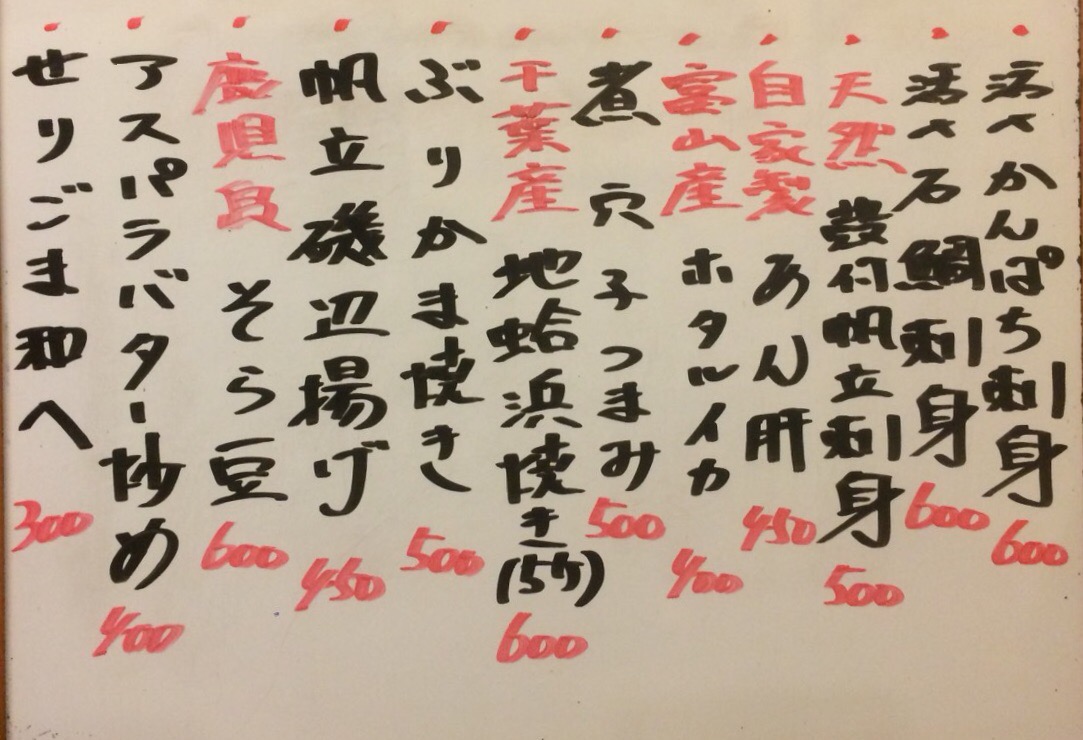 活〆かんぱち刺身 600
活〆石鯛刺身 600
天然殻付帆立刺身 500
自家製あん肝 450
富山産ホタルイカ 400
煮穴子つまみ 500
千葉産地蛤浜焼き(5ケ) 600
ぶりかま焼き 500
帆立磯辺揚げ 450
鹿児島そら豆 600
アスパラバター炒め 400
せりごま和へ 300